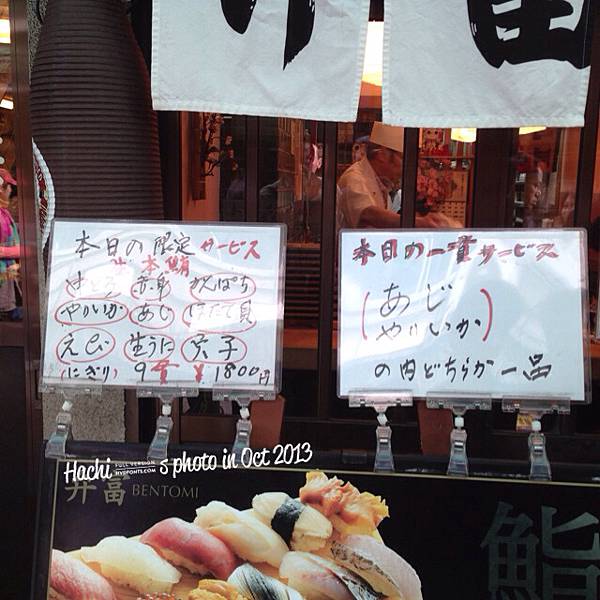 本日の限定サービス
生本鮪
中とろ 赤身 かんぱち
やりいか あじ ほたて貝
えび 生うに 穴子
(にぎり) 9貫 ¥1800円
本日の一貫サービス
(あじ
やりいか)
の内どちらか一品
Hachi FULL VERSION NYDFONTS.COM s photo in Oct 2013
丼富 BENTOMI
鮨